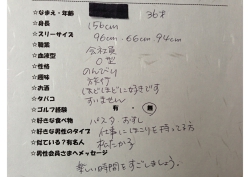 ☆なまえ・年齢 36才
☆身長 156cm
☆スリーサイズ 96cm.66cm.94cm
☆職業 会社員
☆血液型 O型
☆性格 のんびり
☆趣味 旅行
☆お酒 ほどほどに好きです
☆タバコ すいません
☆ゴルフ経験 有・無
☆好きな食べ物 パスタ おすし
☆好きな男性のタイプ 仕事にほこりを持ってる方
☆似ている?有名人 松たか子
☆男性会員さまへメッセージ
楽しい時間をすごしましょう。